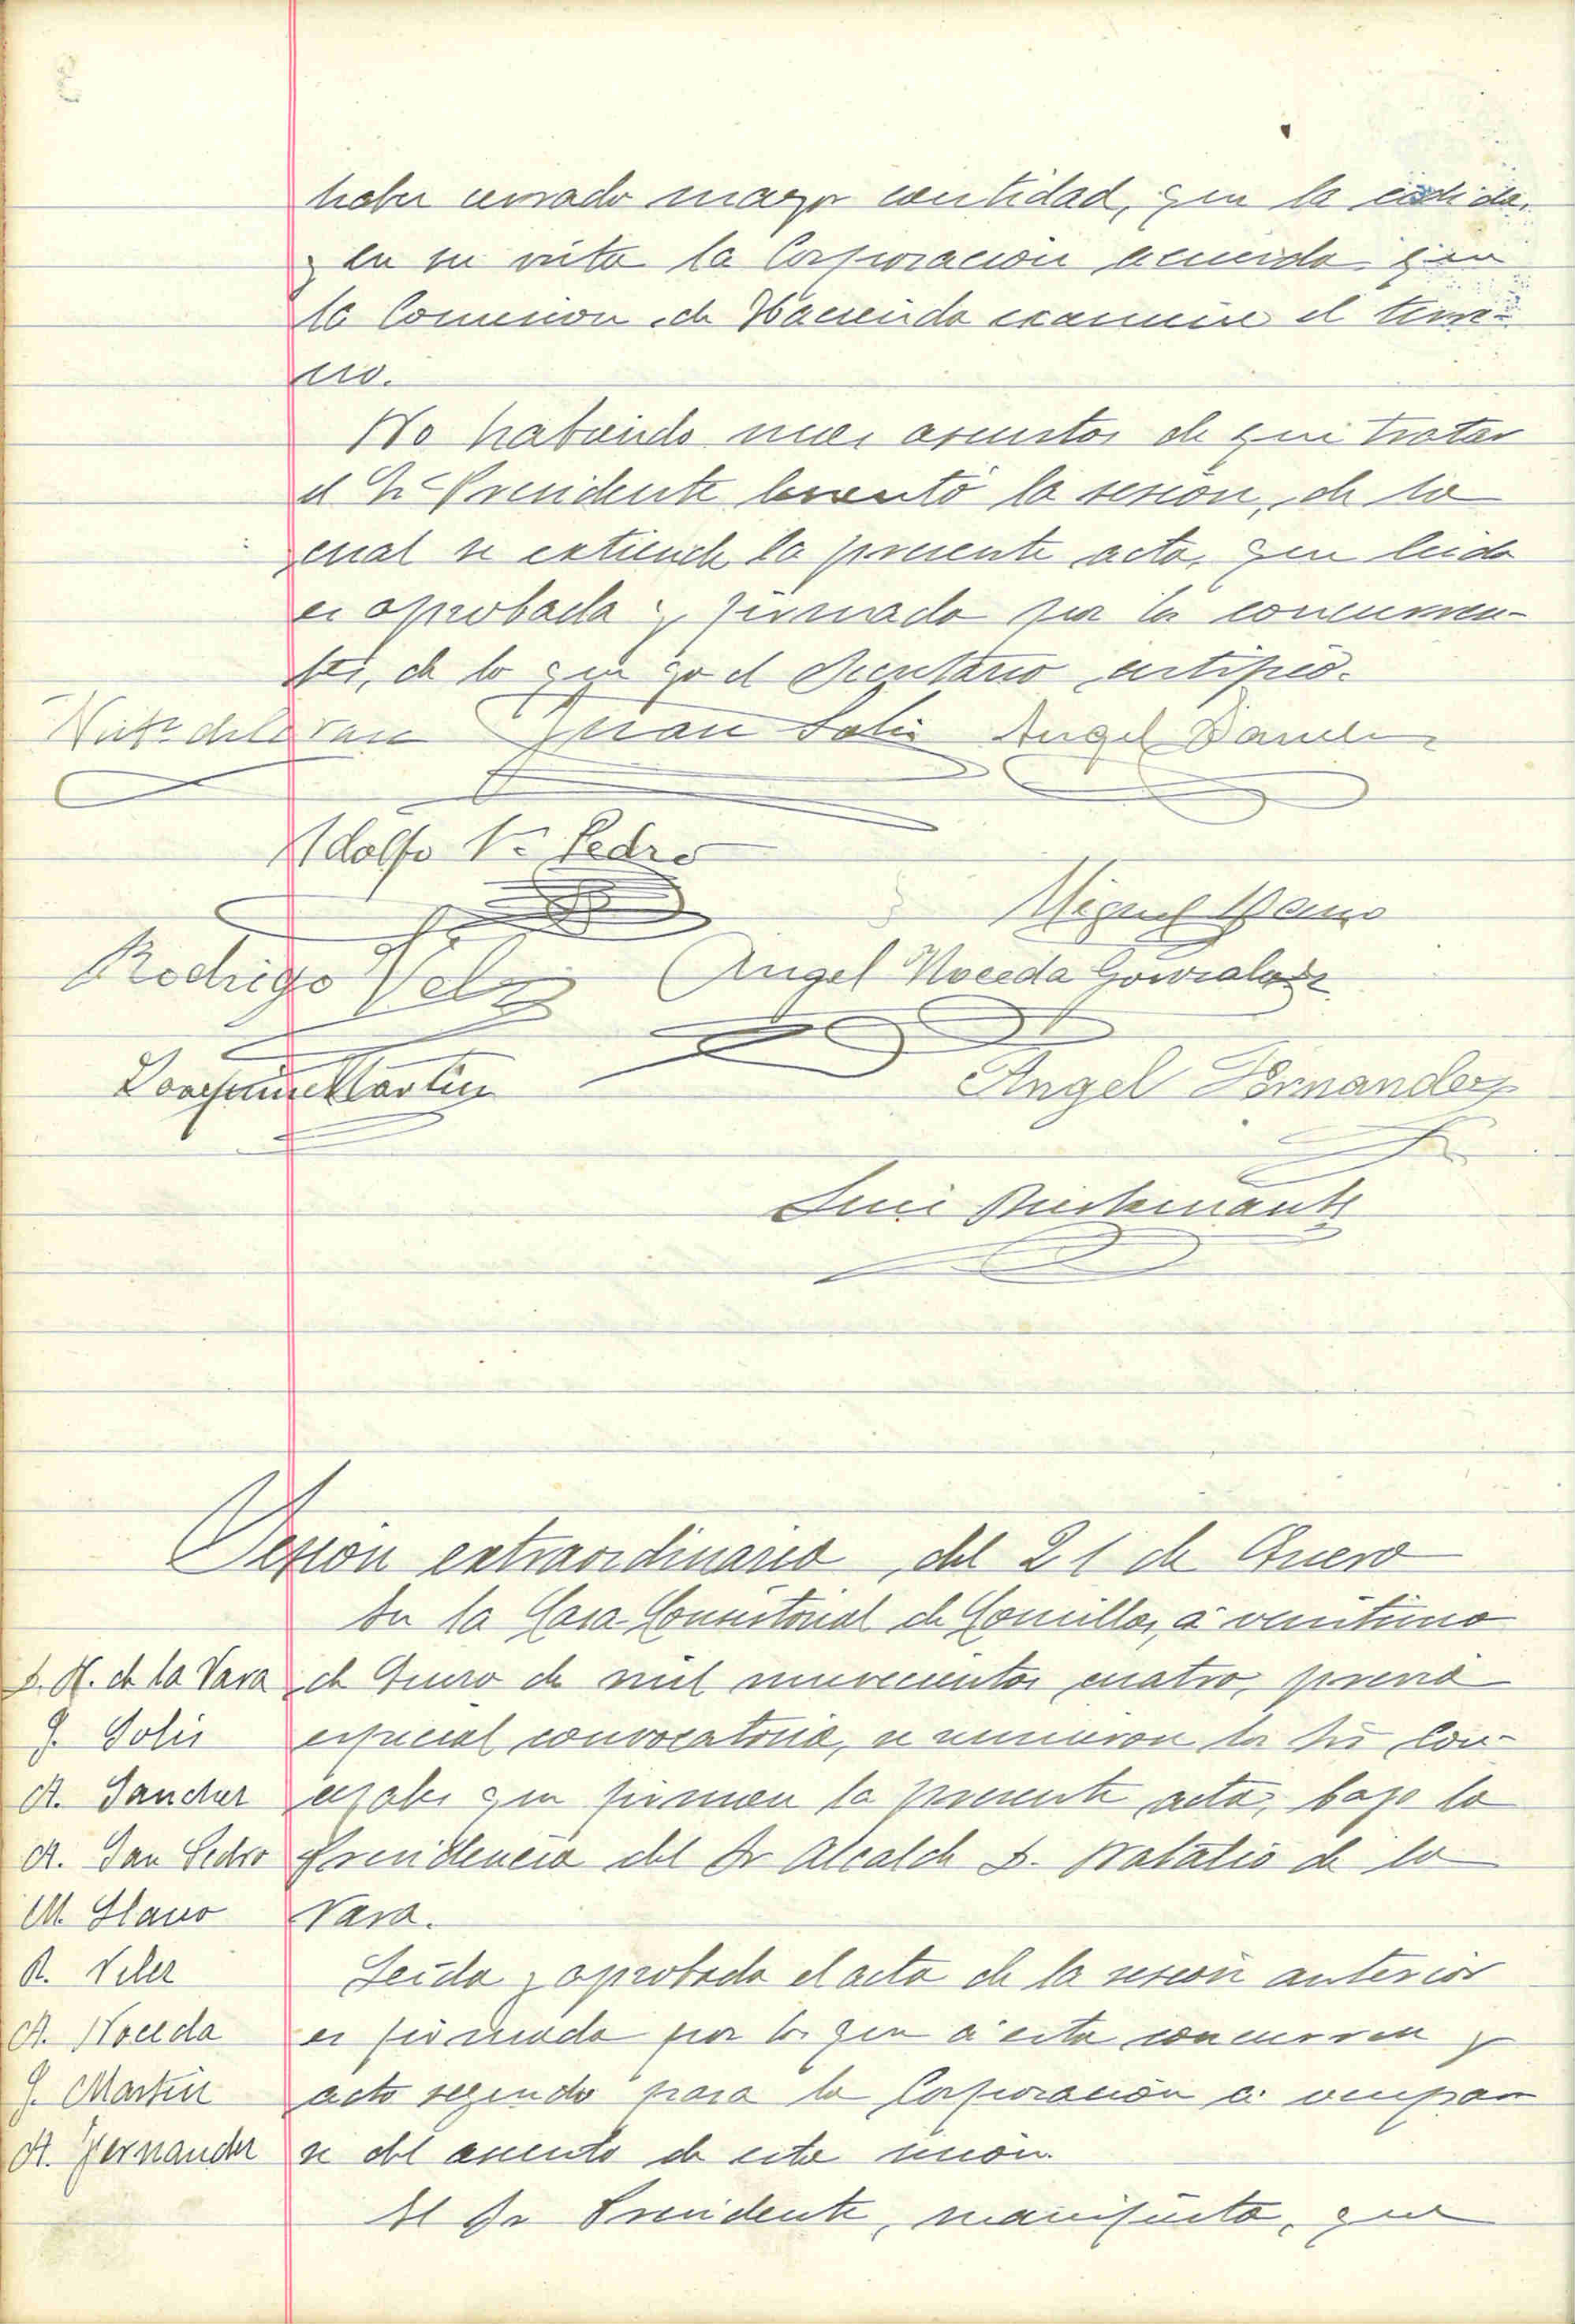 haber cerrado mayor cantidad, que la cedida,
y en su vista la Corporacion acuerda que
la Comision de Hacienda examine el terre-
no.
No habiendo mas asuntos de que tratar
el Sr Presidente levantó la sesion, de la
cual se extiende la presente acta, que leida
es aprobada y firmada por los concurren-
tes, de lo que yo el Secretario certifico.
Nat. de la Vara Juan Solis Angel Sanchez
Adolfo Sn Pedro
Miguel Llano
Rodrigo Velez Angel Noceda Gonzalez
Joaquin Martin
Angel Fernandez
Luis Bustamante
Sesion extraordinaria del 21 de Enero
En la Casa Consistorial de Comillas, á veintiuno
D. N. de la Vara de Enero de mil novecientos cuatro, previa
J. Solis especial convocatoria, se reunieron los Srs Con-
A. Sanchez cejales que firman la presente acta, bajo la
A. San Pedro presidencia del Sr Alcalde D. Natalio de la
M. Llano Vara.
R. Velez Leida y aprobada el acta de la sesion anterior
A. Noceda es firmada por los que á esta concurren y
J. Martin acto seguido pasa la Corporación á ocupar
A. Fernandez se del asunto de esta sesion.
El Sr Presidente, manifiesta, que